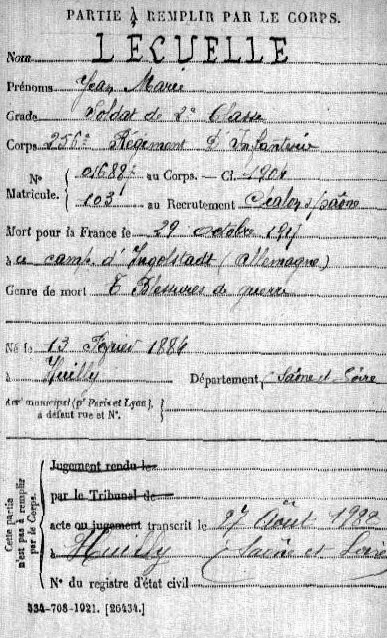 PARTIE À REMPLIR PAR LE CORPS.
Nom LECUELLE
Prénoms Jean Marie
Grade Soldat de 2e Classe
Corps 256e Régiment d'Infanterie
No 01688 au Corps. — Cl. 1904
Matricule. 103 au Recrutement Chalon s/Saône
Mort pour la France le 29 octobre
à camp d'Ingolstadt (Allemagne)
Genre de mort Blessures de guerre
Né le 13 Février 1884
à Huilly Département Saône et Loire
Arr municipal (pr Paris et Lyon),
à défaut rue et No.
Cette partie n'est pas à remplir par le Corps.
Jugement rendu le
par le Tribunal de
acte ou jugement transcrit le 27 Août
à Huilly Saône et Loire
No du registre d'état civil
534-708-1921. [26434.]